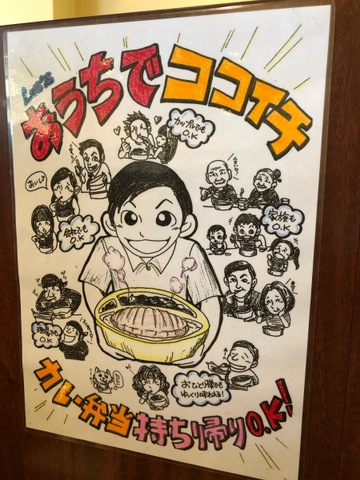 Let's
おうちで
ココイチ
カップルでも
O.K
おいしい
会社でも
O.K
家族でも
O.K
O.K
おひとり様でも
ゆっくり味わえる!
カレー弁当持ち帰りO.K!